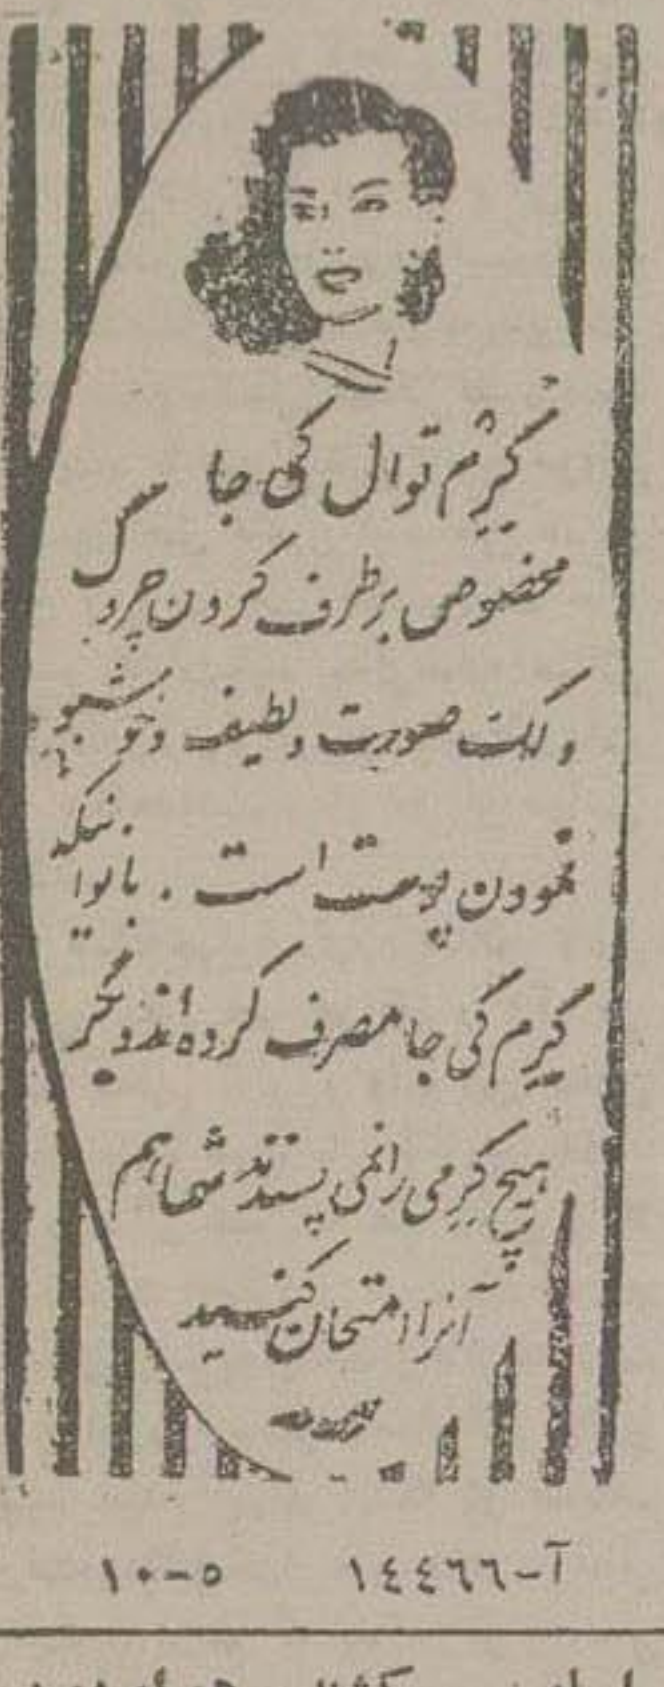 کرم توال کی جا
مخصوص برطرف کردن چروک
و لک صورت و لطیف و خوشبو
نمودن پوست است . بانوانیکه
کرم کی جا مصرف کرده‌اند دیگر
هیچ کرمی را نمی پسندند شما هم
آنرا امتحان کنید
آ-١٤٤٦٦ ١٠-٥